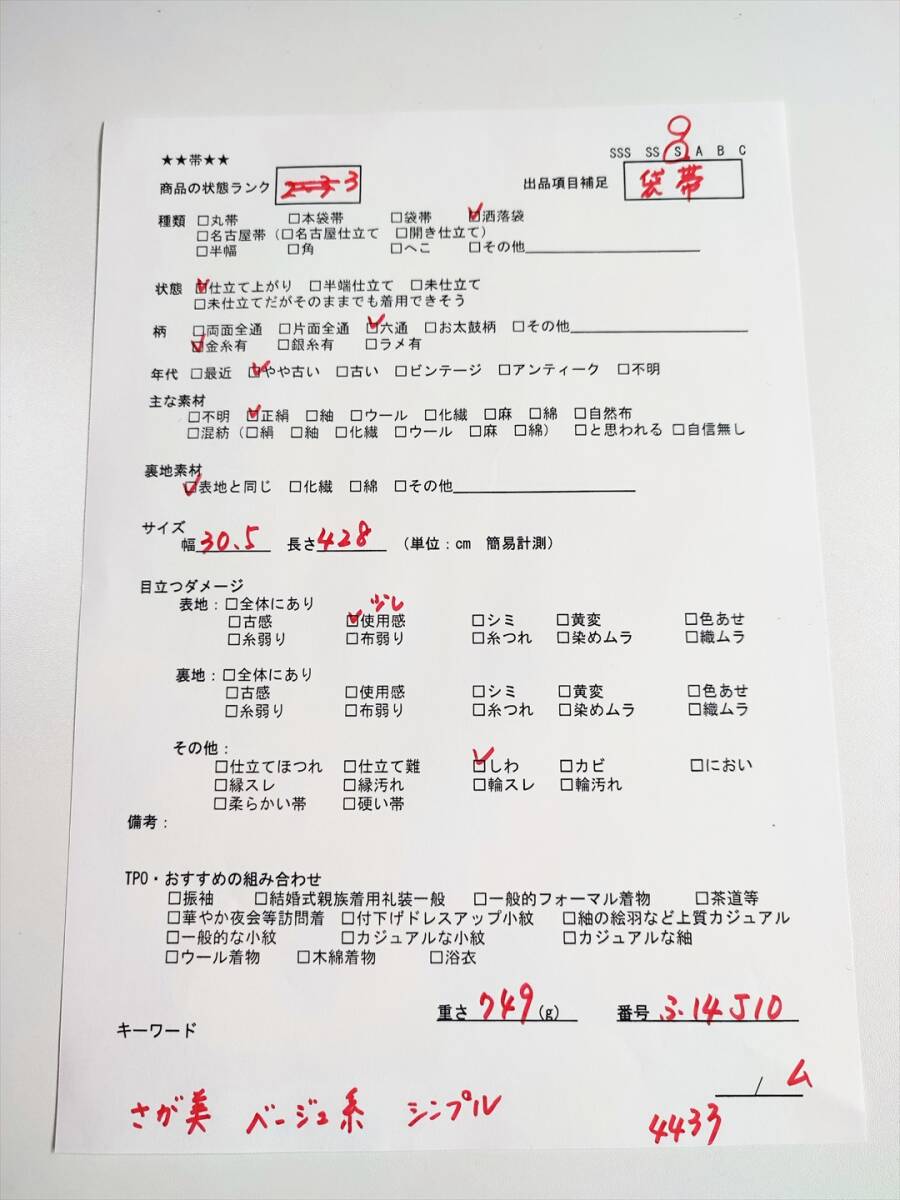 SSS SS S A B C
★★帯★★
商品の状態ランク 3 出品項目補足 袋帯
種類 □丸帯 □本袋帯 □袋帯 ☑洒落袋
□名古屋帯(□名古屋仕立て □開き仕立て)
□半幅 □角 □へこ □その他
状態 ☑仕立て上がり □半端仕立て □未仕立て
□未仕立てだがそのままでも着用できそう
柄 □両面全通 □片面全通 ☑六通 □お太鼓柄 □その他
☑金糸有 □銀糸有 □ラメ有
年代 □最近 ☑やや古い □古い □ビンテージ □アンティーク □不明
主な素材
□不明 ☑正絹 □紬 □ウール □化繊 □麻 □綿 □自然布
□混紡(□絹 □紬 □化繊 □ウール □麻 □綿) □と思われる □自信無し
裏地素材
☑表地と同じ □化繊 □綿 □その他
サイズ
幅 30.5 長さ 428 (単位:cm 簡易計測)
目立つダメージ
表地:□全体にあり 少し
□古感 ☑使用感 □シミ □黄変 □色あせ
□糸弱り □布弱り □糸つれ □染めムラ □織ムラ
裏地:□全体にあり
□古感 □使用感 □シミ □黄変 □色あせ
□糸弱り □布弱り □糸つれ □染めムラ □織ムラ
その他:
□仕立てほつれ □仕立て難 ☑しわ □カビ □におい
□縁スレ □縁汚れ □輪スレ □輪汚れ
□柔らかい帯 □硬い帯
備考:
TPO・おすすめの組み合わせ
□振袖 □結婚式親族着用礼装一般 □一般的フォーマル着物 □茶道等
□華やか夜会等訪問着 □付下げドレスアップ小紋 □紬の絵羽など上質カジュアル
□一般的な小紋 □カジュアルな小紋 □カジュアルな紬
□ウール着物 □木綿着物 □浴衣
重さ 749 (g) 番号 ふ-14J10
キーワード
/ ム
さが美 ベージュ系 シンプル
4433